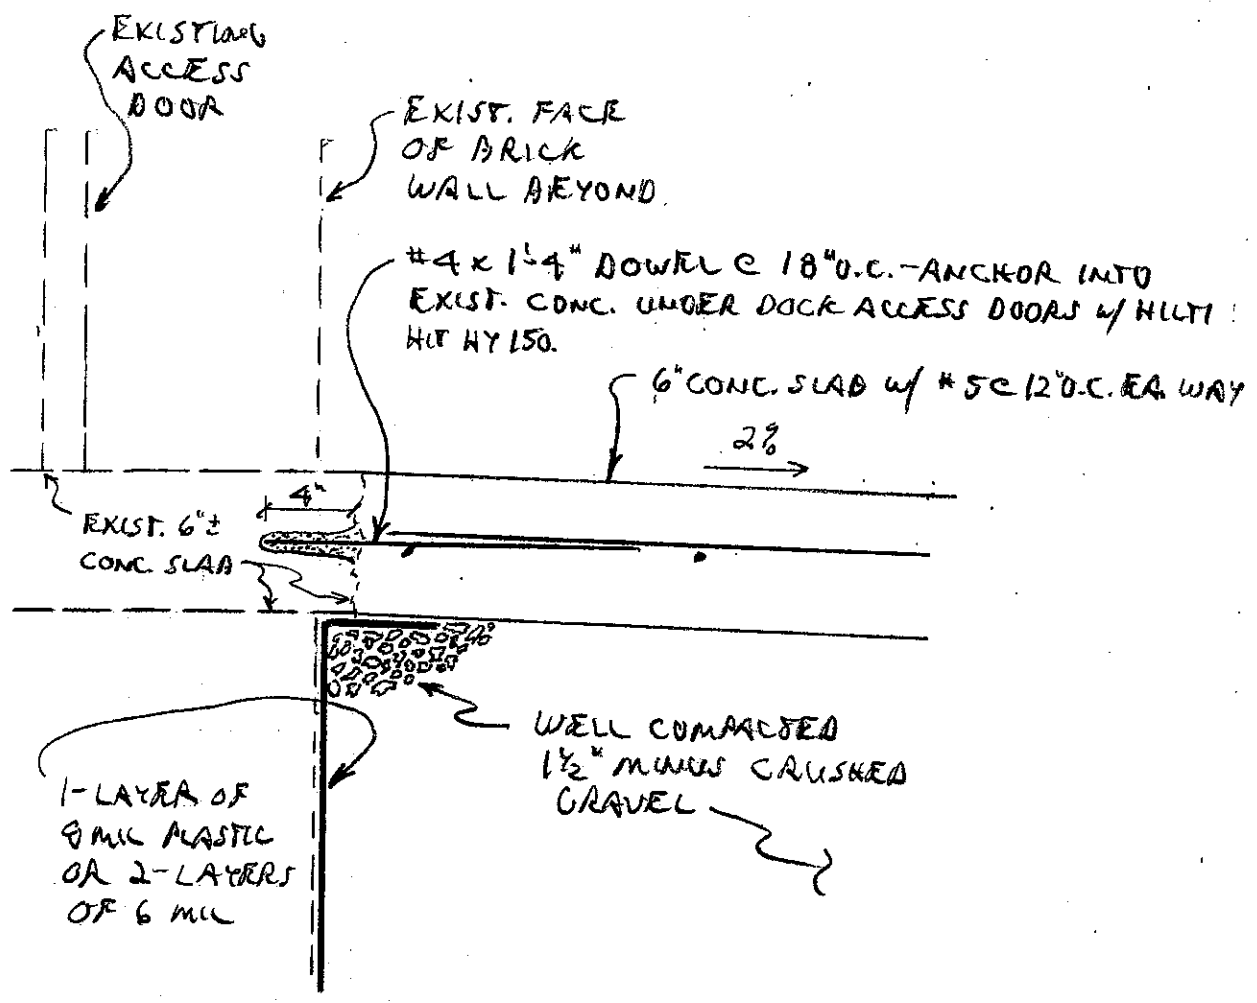 EXISTING
ACCESS
DOOR
EXIST. FACE
OF BRICK
WALL BEYOND.
#4 x 1'-4" DOWEL @ 18" O.C. - ANCHOR INTO
EXIST. CONC. UNDER DOCK ACCESS DOORS w/ HILTI
HIT HY 150.
6" CONC. SLAB w/ #5 @ 12" O.C. EA. WAY
2%
4"
EXIST. 6"±
CONC. SLAB
WELL COMPACTED
1½" MINUS CRUSHED
GRAVEL
1-LAYER OF
8 MIL PLASTIC
OR 2-LAYERS
OF 6 MIL